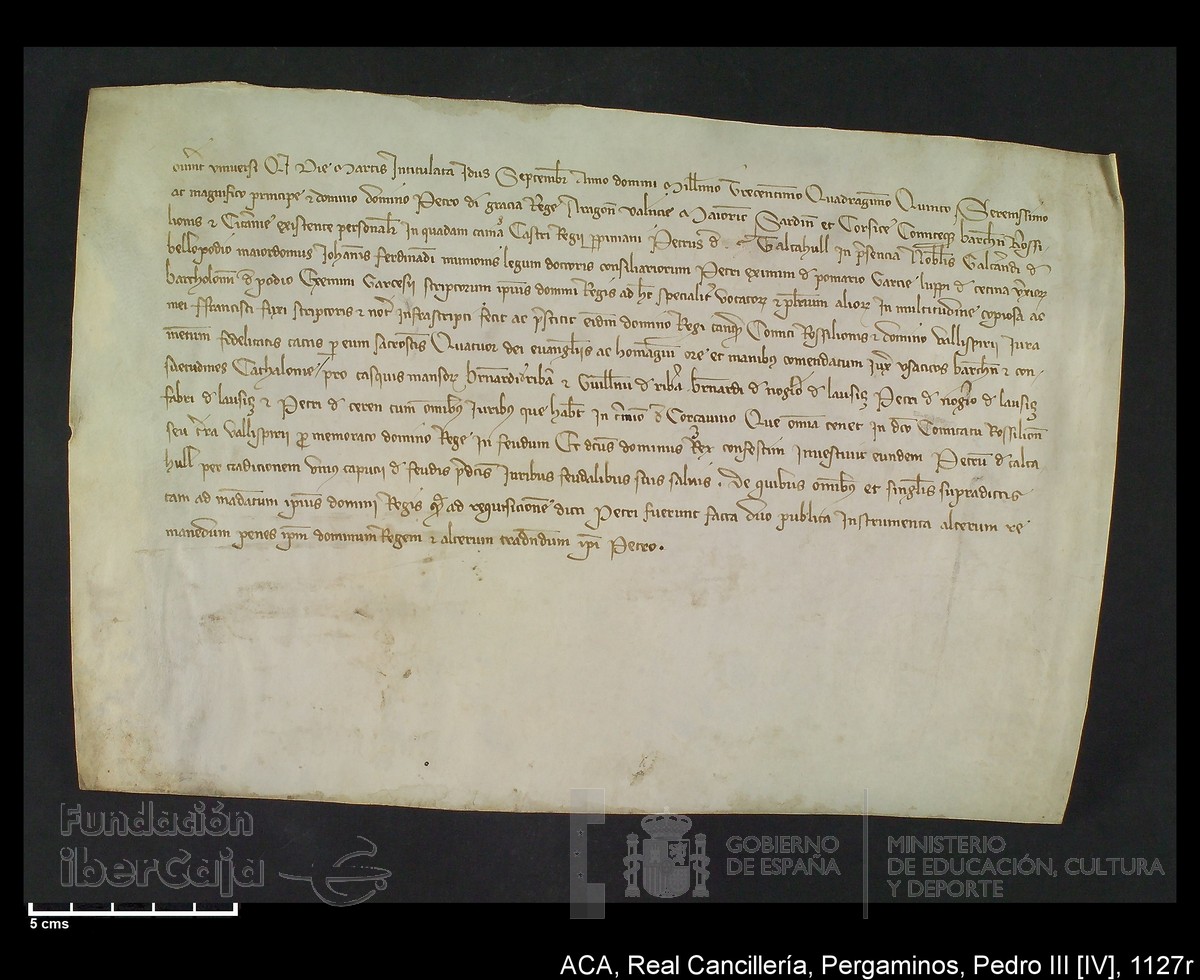 Noverint universi Qd Die Martis Intitulata Idus Septembr Anno domini Millimo Trecentimo Quadragimo Quinto Serenissimo
ac magnifico principe & domino domino Petro di gracia Rege Aragon Valncie Maioric Sardin et Corsice Comiteq barchn Rossi-
lionis & Ciritanie existente personalr In quadam camra Castri Regii ppiniani Petrus d Talcahull In psencia Nobilis Galcrandi d
bellopodio maiordomus Johannis Ferdinandi munionis legum doctoris consiliariorum Petri eximini d pomario Garcie luppi d cetina
bartholomi d podio Exemini Garcesii scriptorum ipius domini Regis ad hc specialit vocatorum & plurium alior In multitudine copiosa ac
mei ffrancisci scriptoris & not Infrascripti fecit ac pstitit eidm domino Regi tanq Comiti Rossilionis & domino Vallispirii Jura
mentum fidelitatis tactis p eum sacrostis Quatuor dei euangliis ac homagiu ore et manibus comendatum Jux usaticos barchn & con-
suetudines Cathalonie pro casquis mansor bernardi d riba & Guillmi d riba bernardi d noglo d lausi Petri d noglo d lausi
fabri d lausi & Petri d ceren cum omnibus Juribus que habet In tmio d Corcavino Que omnia tenet in dco Comitatu Rossilion
seu terra Vallispirii p memorato domino Rege In feudum Et dctus dominus Rex confestim Investivit eundem Petrum d talca
hull per tradicionem unius capucii d feudis pdcis Juribus feudalibus suis salvis . De quibus omnibus et singlis supradictis
tam ad mandatum ipius domini Regis q ad requisicione dicti Petri fuerunt facta duo publica Instrumenta alterum re
manendum penes ipm dominum Regem & alterum tradendum ipi Petro .
Fundación
iberCaja
GOBIERNO
DE ESPAÑA
MINISTERIO
DE EDUCACIÓN, CULTURA
Y DEPORTE
5 cms
ACA, Real Cancillería, Pergaminos, Pedro III [IV], 1127r